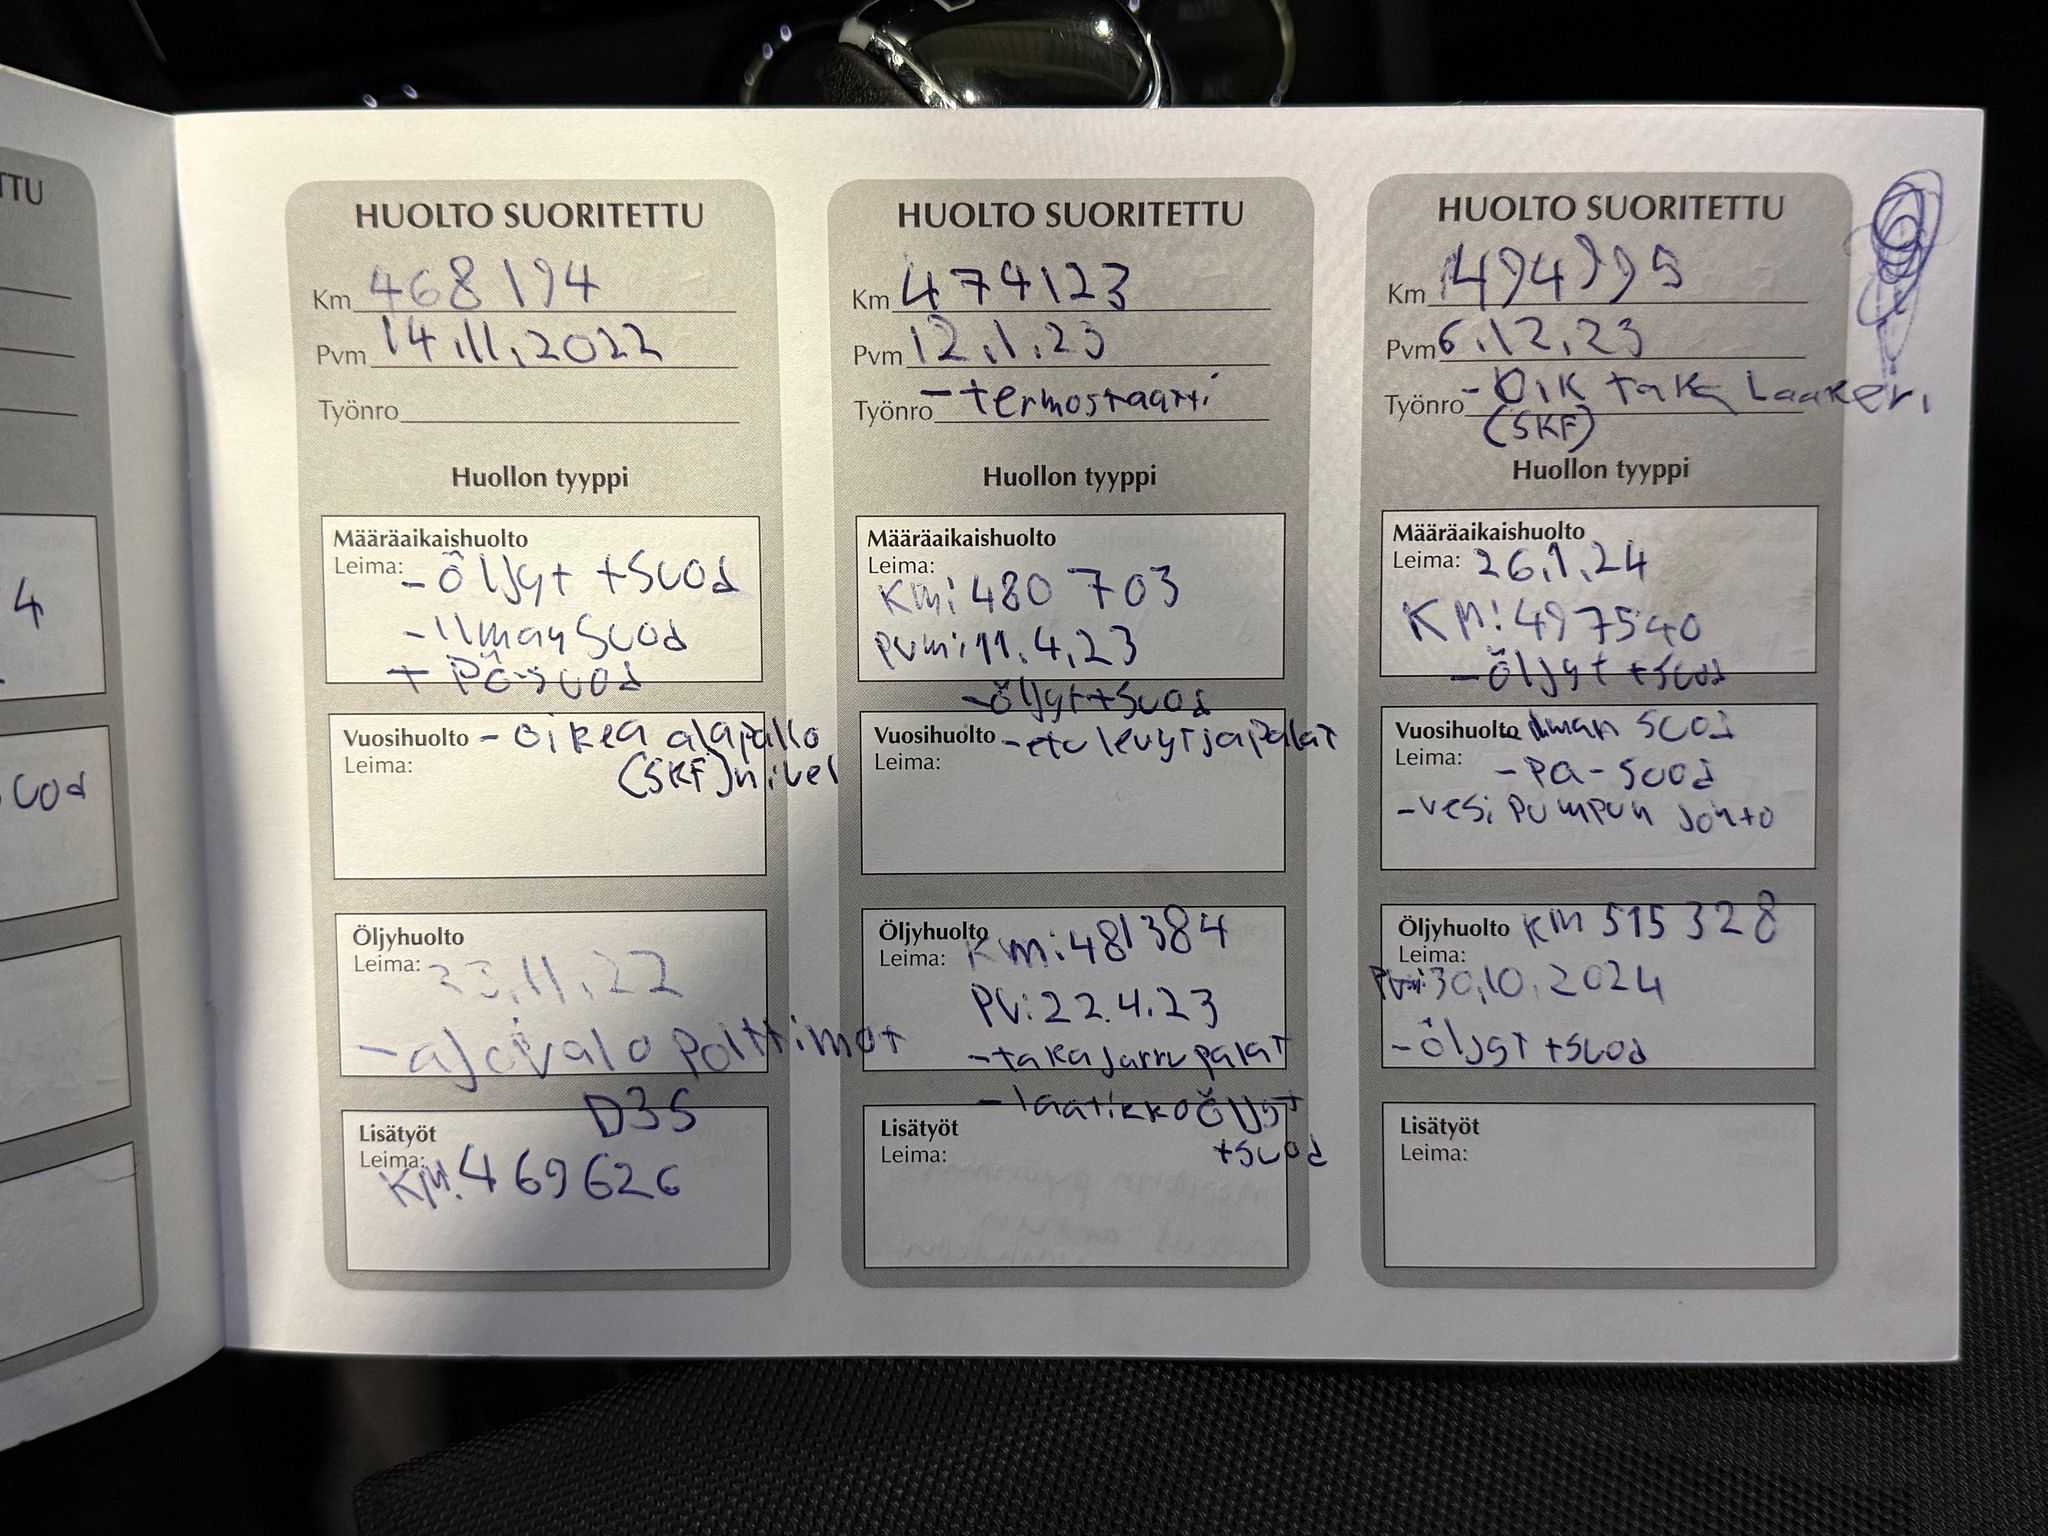 TTU
4
scod
HUOLTO SUORITETTU
Km 468194
Pvm 14.11.2022
Työnro
Huollon tyyppi
Määräaikaishuolto
Leima: -öljyt +suod
-ilman suod
+ Pö-suod
Vuosihuolto - oikea alapallo
Leima: (SKF) nivel
Öljyhuolto
Leima: 23.11.22
-ajovalo polttimot
D3S
Lisätyöt
Leima:
KM: 469626
HUOLTO SUORITETTU
Km 474123
Pvm 12.1.23
Työnro -termostaatti
Huollon tyyppi
Määräaikaishuolto
Leima:
Km: 480 703
pvm: 11.4.23
-öljyt+suod
Vuosihuolto -etu levyt ja palat
Leima:
Öljyhuolto
Leima: Km: 481384
PV: 22.4.23
-taka jarru palat
-laatikko öljyt
+suod
Lisätyöt
Leima:
HUOLTO SUORITETTU
Km 494995
Pvm 6.12.23
Työnro -Oik taka Laakeri
(SKF)
Huollon tyyppi
Määräaikaishuolto
Leima: 26.1.24
KM: 497540
-öljyt +suod
Vuosihuolto -ilman suod
Leima: -pa-suod
-vesi pumpun johto
Öljyhuolto km 515 328
Leima:
Pvm: 30.10.2024
-öljyt +suod
Lisätyöt
Leima: